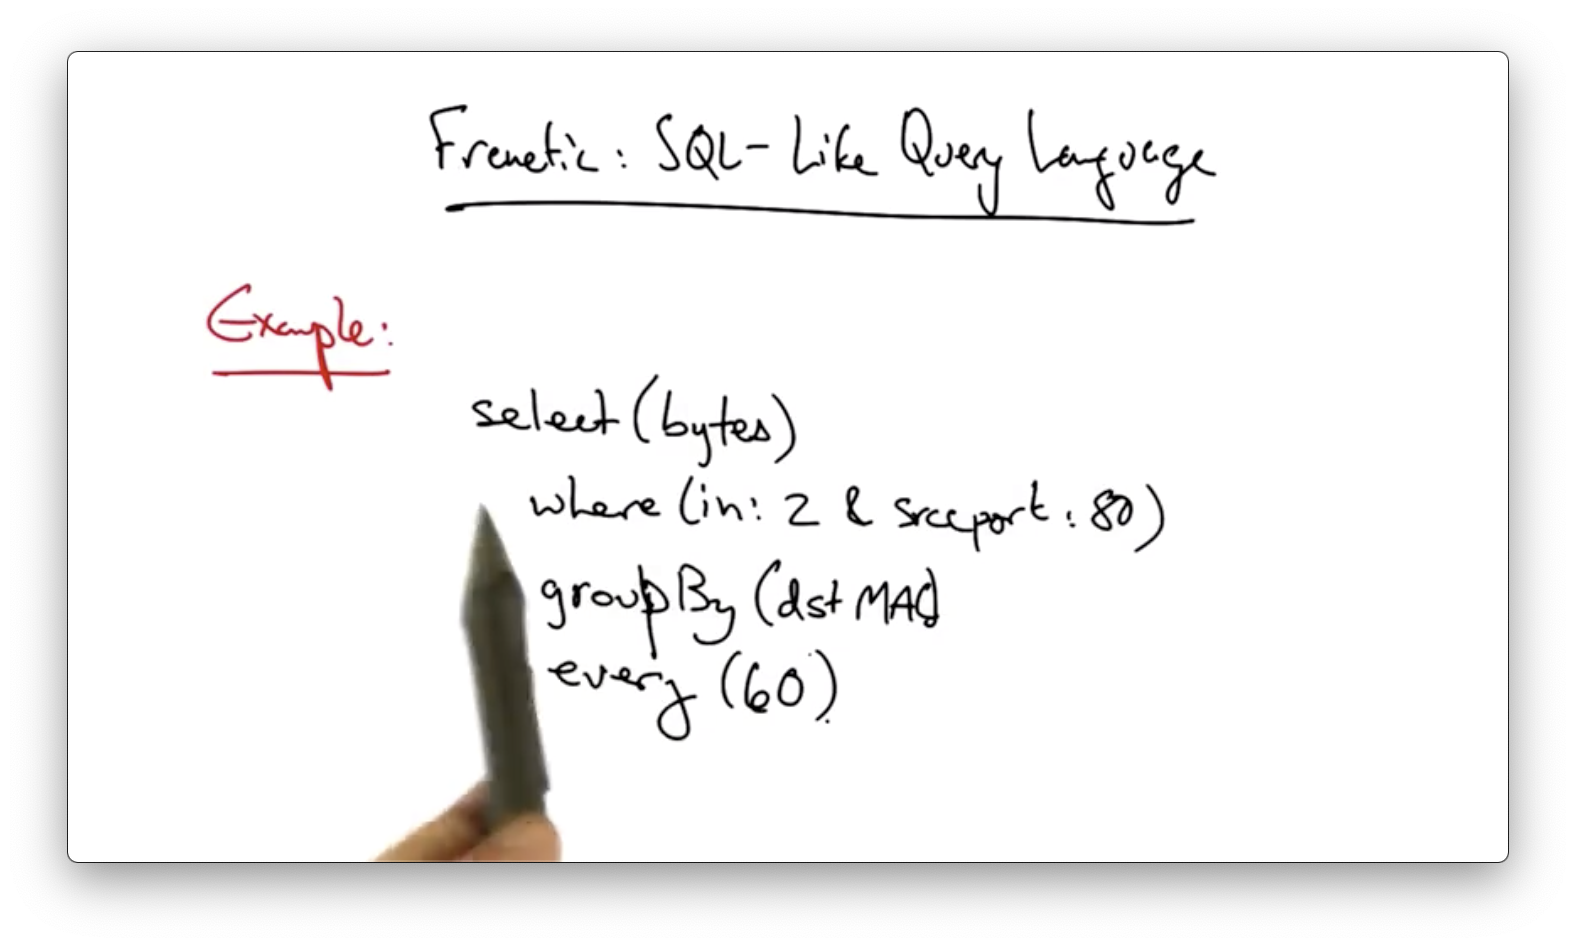 Frenetic: SQL-Like Query Language
Example:
select (bytes)
where (in: 2 & srcport: 80)
groupBy (dst MAC)
every (60)